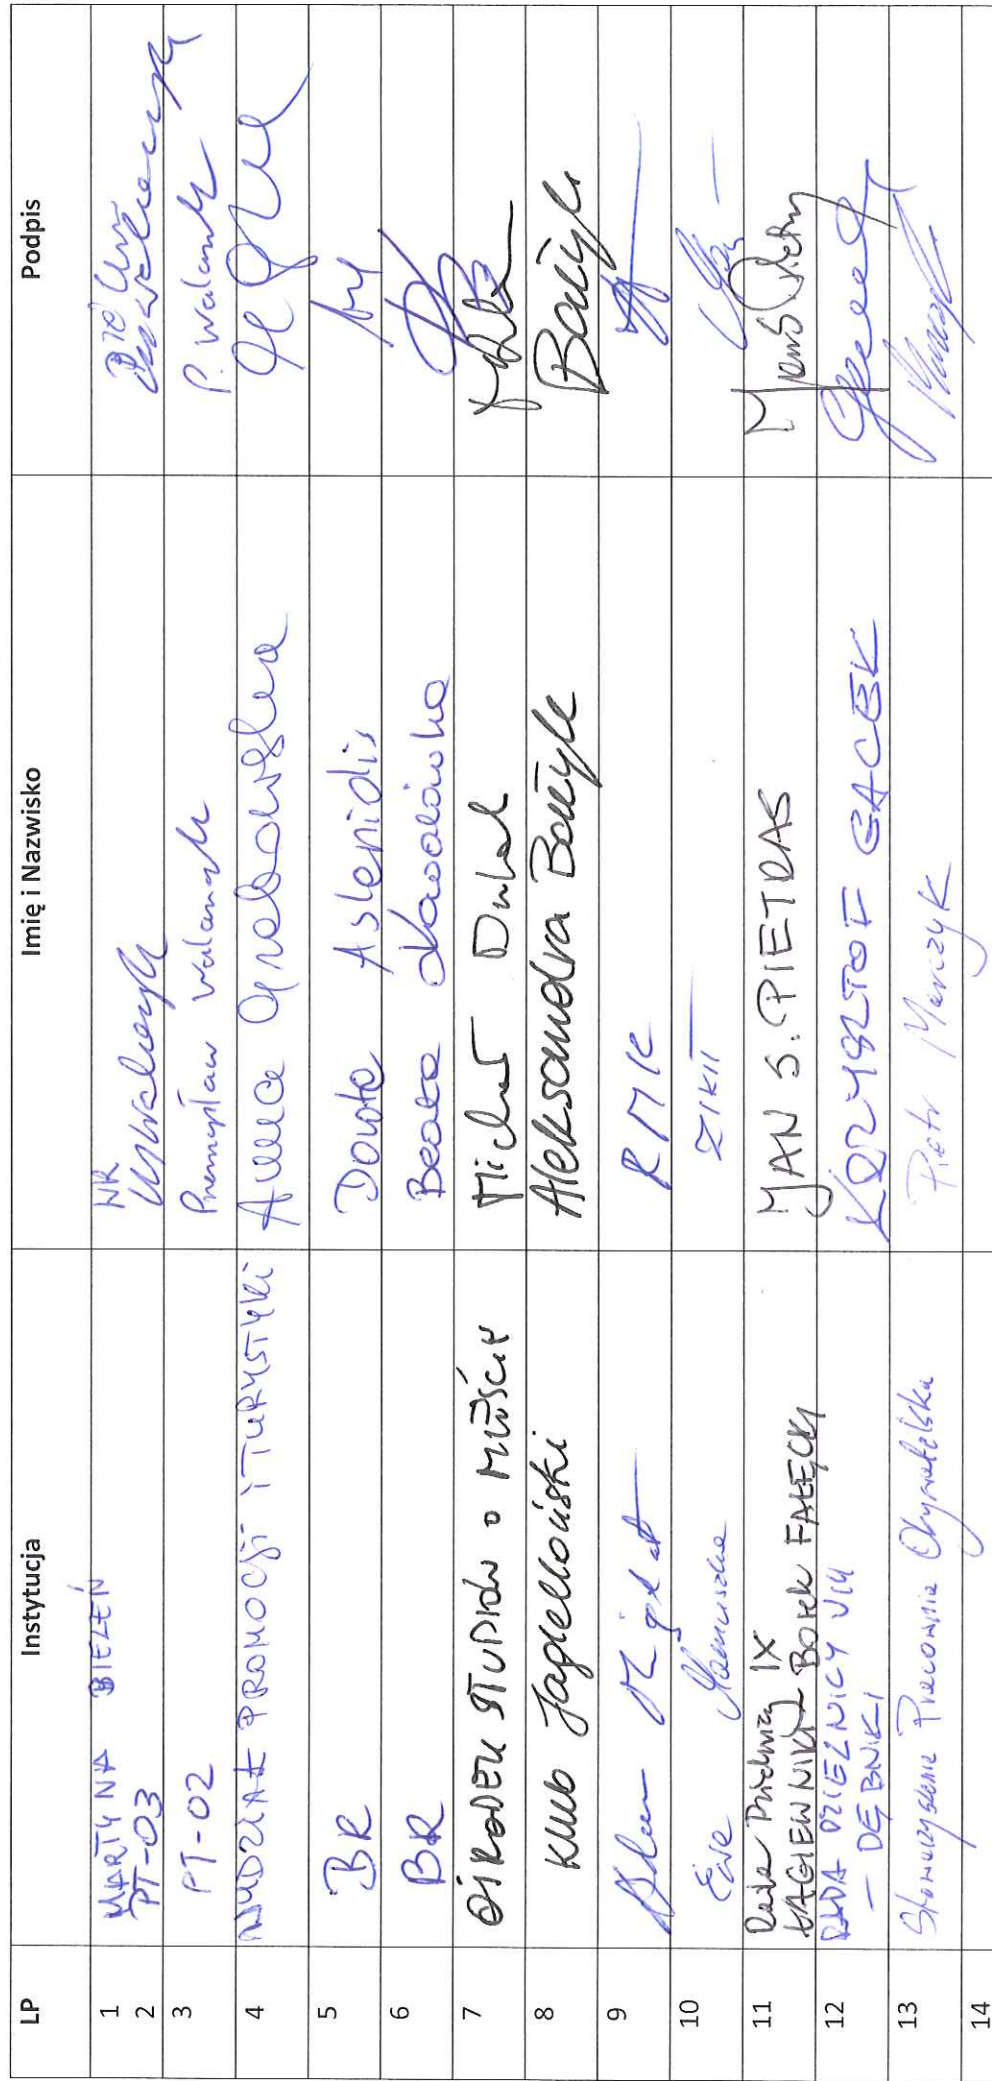 LP Instytucja Imię i Nazwisko Podpis
1 MARTYNA BIELEŃ WR
2 PT-03
3 PT-02 Przemysław Walamyk P. Walamyk
4 WYDZIAŁ PROMOCJI I TURYSTYKI Anna Grabowska
5 BR Dorota Aslenidis
6 BR Beata
7 OŚRODEK STUDIÓW O MIEŚCIE Michał Dulak
8 KLUB Jagielloński Aleksandra Bańyk Bańyk
9 Adam RMK
10 Ewa ZIKIT
11 Rada Dzielnicy IX JAN S. PIETRAS
ŁAGIEWNIKI - BOREK FAŁĘCKI
12 RADA DZIELNICY VIII KRZYSZTOF GACEK
- DĘBNIKI
13 Stowarzyszenie Pracownia Obywatelska Piotr Marczyk
14